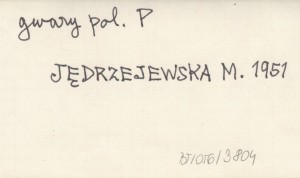 gwary pol. P
JĘDRZEJEWSKA M. 1951
/3804